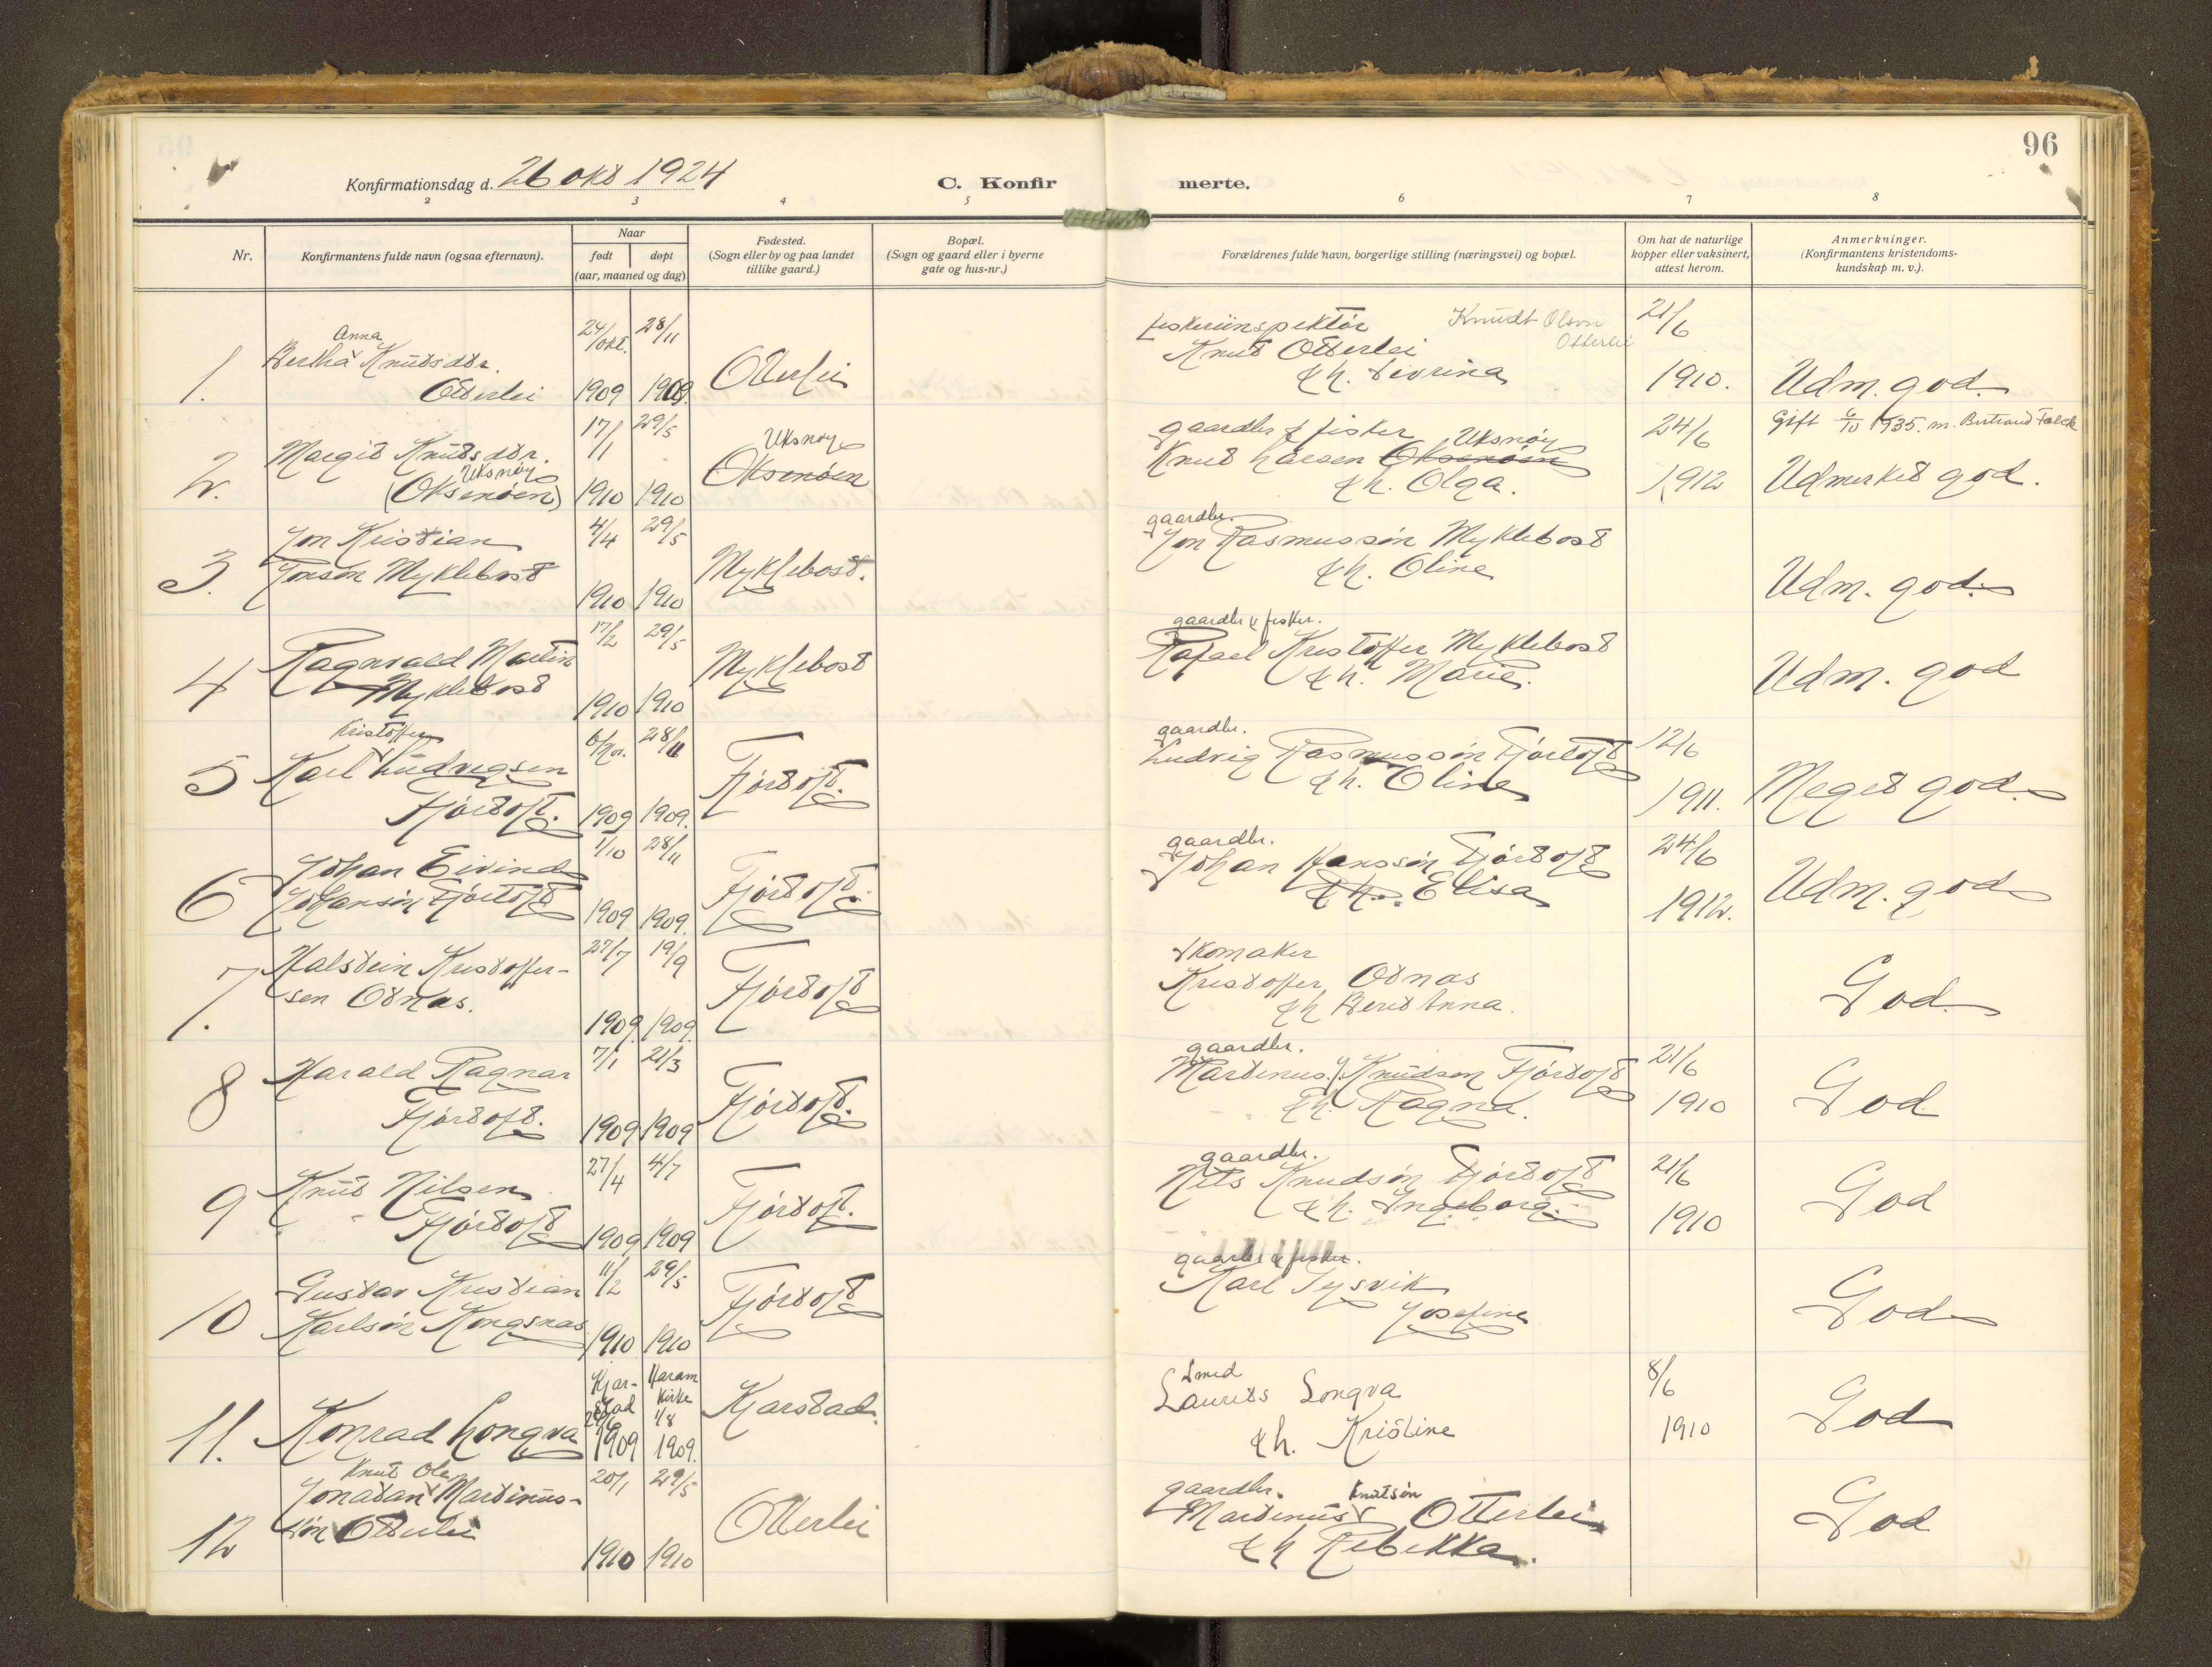 96
Konfirmationsdag d. 26 okt 1924
C. Konfir
merte.
2 3 4 5 6 7 8
Nr.
Konfirmantens fulde navn (ogsaa efternavn).
Naar
født døpt
(aar, maaned og dag)
Fødested.
(Sogn eller by og paa landet
tillike gaard.)
Bopæl.
(Sogn og gaard eller i byerne
gate og hus-nr.)
Forældrenes fulde navn, borgerlige stilling (næringsvei) og bopæl.
Om hat de naturlige
kopper eller vaksinert,
attest herom.
Anmerkninger.
(Konfirmantens kristendoms-
kundskap m. v.).
Anna 24/okt. 28/11 fiskeriinspektør Knudt Olson 21/6
1. Bertha Knutsdtr. Knut Otterlei Otterlei
Otterlei 1909 1909. Otterlei & h. Sivrina 1910. Udm. god.
17/1 29/5 Uksnøy gaardbr & fisker Uksnøy 24/6 Gift 6/10 1935. m. Bertrand Falck
2. Margit Knutsdtr. Oksenøen Knut Larsen Oksenøen
Uksnøy
(Oksenøen) 1910 1910 & h. Olga. 1912 Udmerket god.
Jon Kristian 4/4 29/5 gaardbr.
3. Jonsøn Myklebost Myklebost. Jon Rasmussøn Myklebost
1910 1910 & h. Oline Udm. god.
17/2 29/5 gaardbr & fisker.
4 Ragnvald Martin Myklebost Rafael Kristoffer Myklebost
Myklebost 1910 1910 & h. Marie. Udm. god
Kristoffer 6/Nov. 28/11 gaardbr. 12/6
5 Karl Ludvigsen Fjørtoft. Ludvig Rasmussøn Fjørtoft
Fjørtoft. 1909 1909. & h. Oline 1911. Meget god.
1/10 28/11 gaardbr. 24/6
6 Johan Eivind Fjørtoft. Johan Hanssøn Fjørtoft
Johansøn Fjørtoft 1909 1909. & h. Elisa 1912. Udm. god
27/7 19/9 skomaker
7. Halstein Kristoffer- Fjørtoft Kristoffer Otnas God.
sen Otnas. 1909. 1909. & h Berit Anna.
7/1 21/3 gaardbr. 21/6
8 Harald Ragnar Fjørtoft. Martinus J. Knudsen Fjørtoft
Fjørtoft. 1909 1909 & h. Ragna. 1910 God
27/4 4/7 gaardbr. 21/6
9 Knut Nilsen Fjørtoft. Nils Knudsøn Fjørtoft
Fjørtoft 1909 1909 & h. Ingeborg. 1910 God
11/2 29/5 gaardbr & fisker.
10 Gustav Kristian Fjørtoft Karl Tysvik
Karlsøn Kongsnas 1910 1910 Josefine God
Kjar- Haram Smed 8/6
stad kirke Kjarstad. Laurits Longva
29/6 1/8
11. Konrad Longva 1909 1909. & h. Kristine 1910 God
Knut Ole 20/1 29/5 gaardbr. Knutsøn
12 Jonatan Martinus- Otterlei Martinus Otterlei God
søn Otterlei 1910 1910 & h Rebekka.